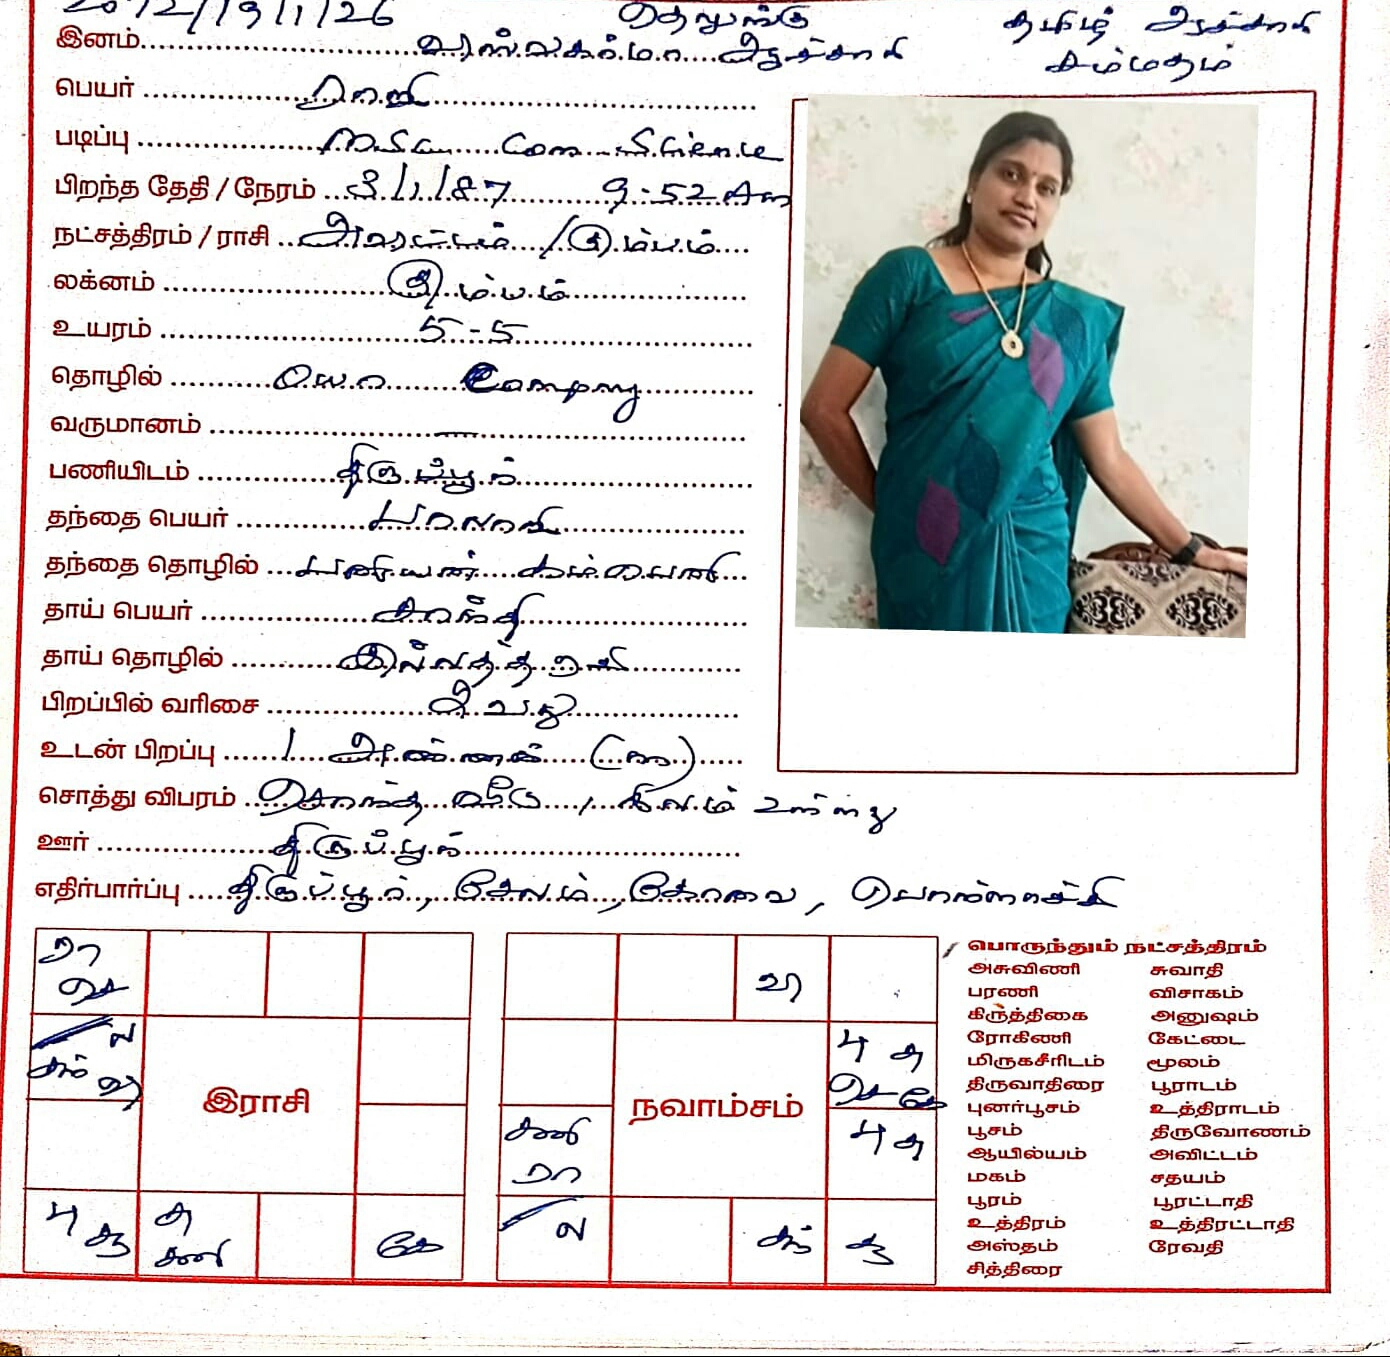 19/1/26 தெலுங்கு தமிழ் ஆச்சாரி
இனம் ஆச்சாரி சம்மதம்
பெயர் ராணி
படிப்பு M.Sc., Com. Science
பிறந்த தேதி / நேரம் 3/1/87 9:52 Am
நட்சத்திரம் / ராசி அவிட்டம் / கும்பம்
லக்னம் கும்பம்
உயரம் 5-5
தொழில் Own Company
வருமானம் —
பணியிடம் திருப்பூர்
தந்தை பெயர்
தந்தை தொழில் பனியன் கம்பெனி
தாய் பெயர் சாந்தி
தாய் தொழில் இல்லத்தரசி
பிறப்பில் வரிசை 2 வது
உடன் பிறப்பு 1 அண்ணன்
சொத்து விபரம் சொந்த வீடு, நிலம் உள்ளது
ஊர் திருப்பூர்
எதிர்பார்ப்பு திருப்பூர், சேலம், கோவை, பொள்ளாச்சி
ரா
செ
ல
சந் வி
இராசி
பு சூ
சு
சனி
கே
வி
பு சு
செ கே
நவாம்சம்
சனி
ரா
பு சு
ல
சந்
சூ
பொருந்தும் நட்சத்திரம்
அசுவிணி சுவாதி
பரணி விசாகம்
கிருத்திகை அனுஷம்
ரோகிணி கேட்டை
மிருகசீரிடம் மூலம்
திருவாதிரை பூராடம்
புனர்பூசம் உத்திராடம்
பூசம் திருவோணம்
ஆயில்யம் அவிட்டம்
மகம் சதயம்
பூரம் பூரட்டாதி
உத்திரம் உத்திரட்டாதி
அஸ்தம் ரேவதி
சித்திரை